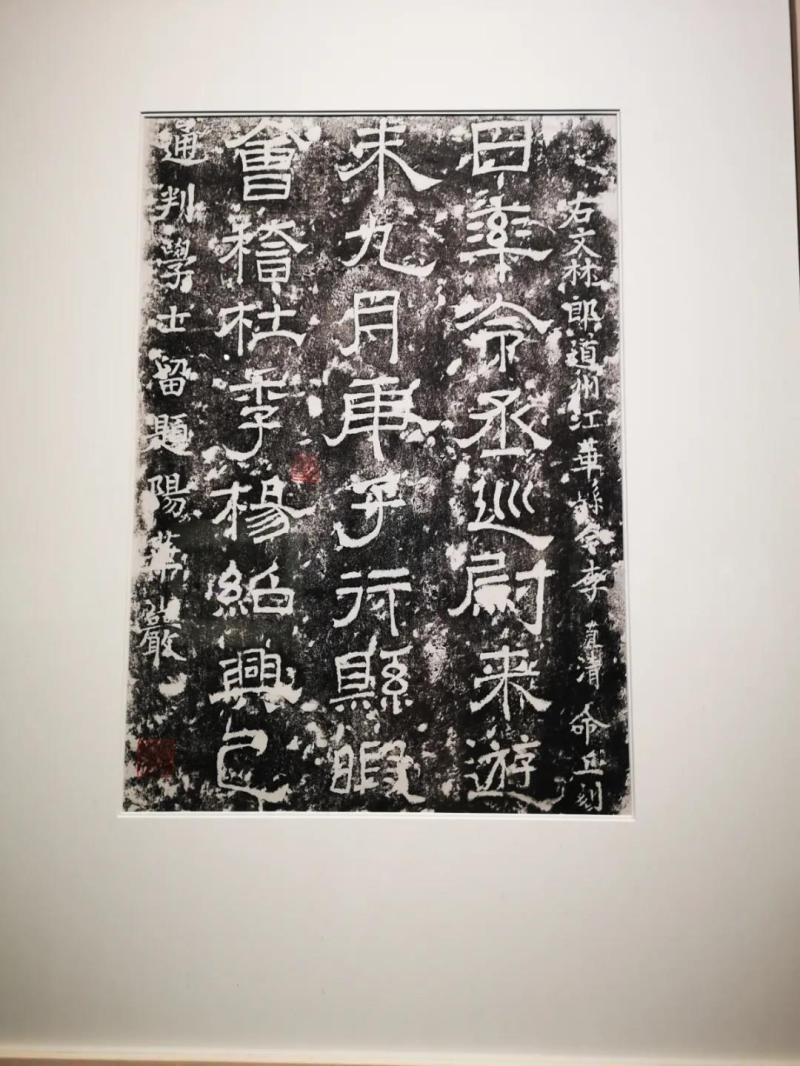 通判學士留題陽華巖
會稽杜季楊紹興己
未九月庚子行縣暇
日率令丞巡尉来遊
右文林郎道州江華縣令李直清命匠刻